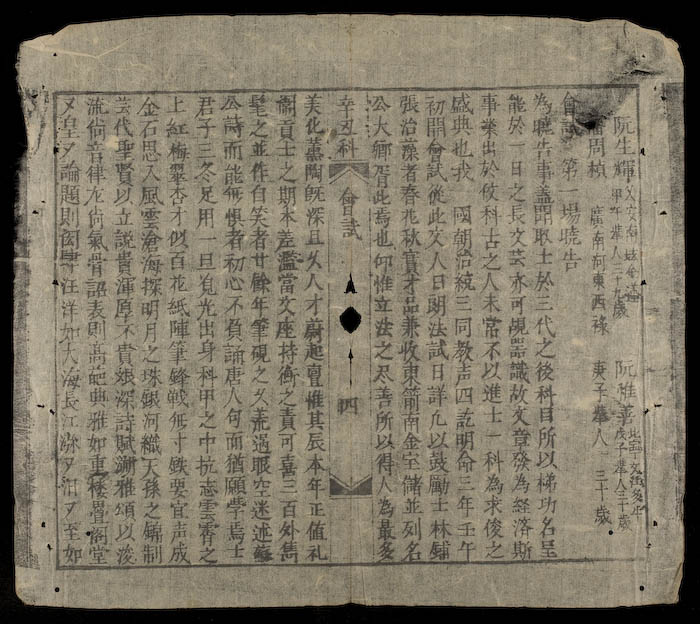 阮生輝 甲午舉人二十九歲 阮雅 戊子舉人三十歲
潘周楨 廣南河東西祿 庚子舉人 三十歲
會試 第一場曉告
為曉告事蓋聞取士於三代之後科目所以梯功名呈
能於一日之長文芸亦可覘器識故文章發為経済斯
事業出於攸科古之人未嘗不以進士一科為求俊之
盛典也我 國朝治統三同教声四訖明命三年壬午
初開會試從此文人日朗法試日詳凡以鼓勵士林鋪
張治藻者春花秋實才品兼收東箭南金室儲並列名
公大卿胥此焉也仰惟立法之尽善所以得人為最多
辛丑科 會試 四
美化薰陶既深且久人才蔚起亶惟其辰本年正值礼
闈貢士之期本差濫當文座持衡之責可喜三百外雋
髦之並作自笑者廿餘年筆硯之久荒過眼空迷蘇
公詩而能無惧者初心不負誦唐人句而猶願孥焉士
君子三冬足用一旦覓光出身科甲之中抗志雲霄之
上紅梅翠杏才似百花紙陣筆鋒戦無寸鉄要宜声成
金石思入風雲滄海探明月之珠銀河織天孫之錦制
芸代聖賢以立説貴渾厚不貴艱深詩賦溯雅頌以浚
流尚音律尤尚氣骨詔表則高皚典雅如重楼疊閣堂
又皇又論題則闳肆汪洋如大海長江弥又汨又至如